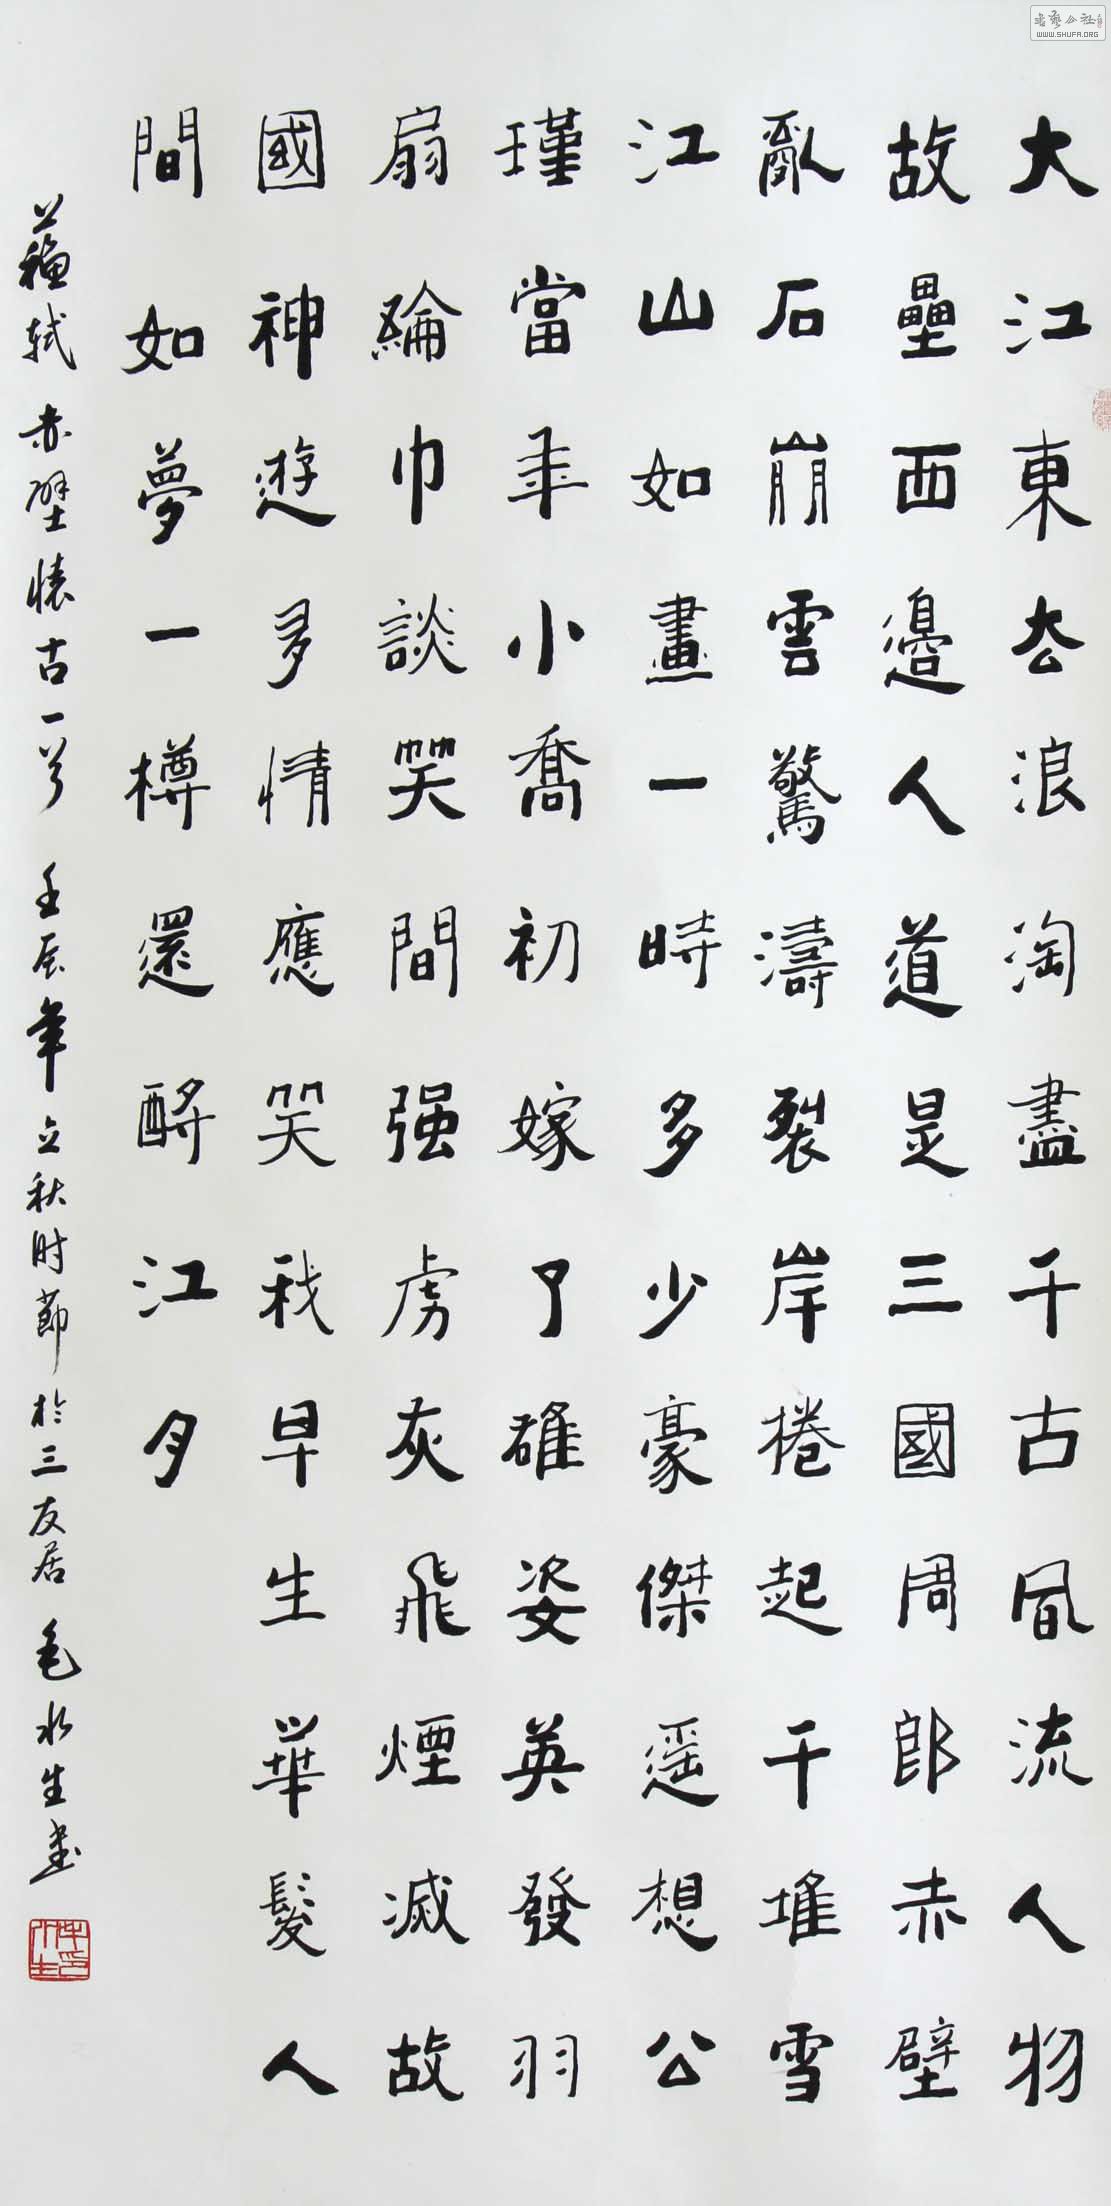 大江東去浪淘盡千古風流人物
故壘西邊人道是三國周郎赤壁
亂石崩雲驚濤裂岸捲起千堆雪
江山如畫一時多少豪傑遥想公
瑾當年小喬初嫁了雄姿英發羽
扇綸巾談笑間强虜灰飛煙滅故
國神遊多情應笑我早生華髮人
間如夢一樽還酹江月
蘇軾赤壁懷古一首 壬辰年立秋时節於三友居 毛水生書
书艺公社
WWW.SHUFA.ORG